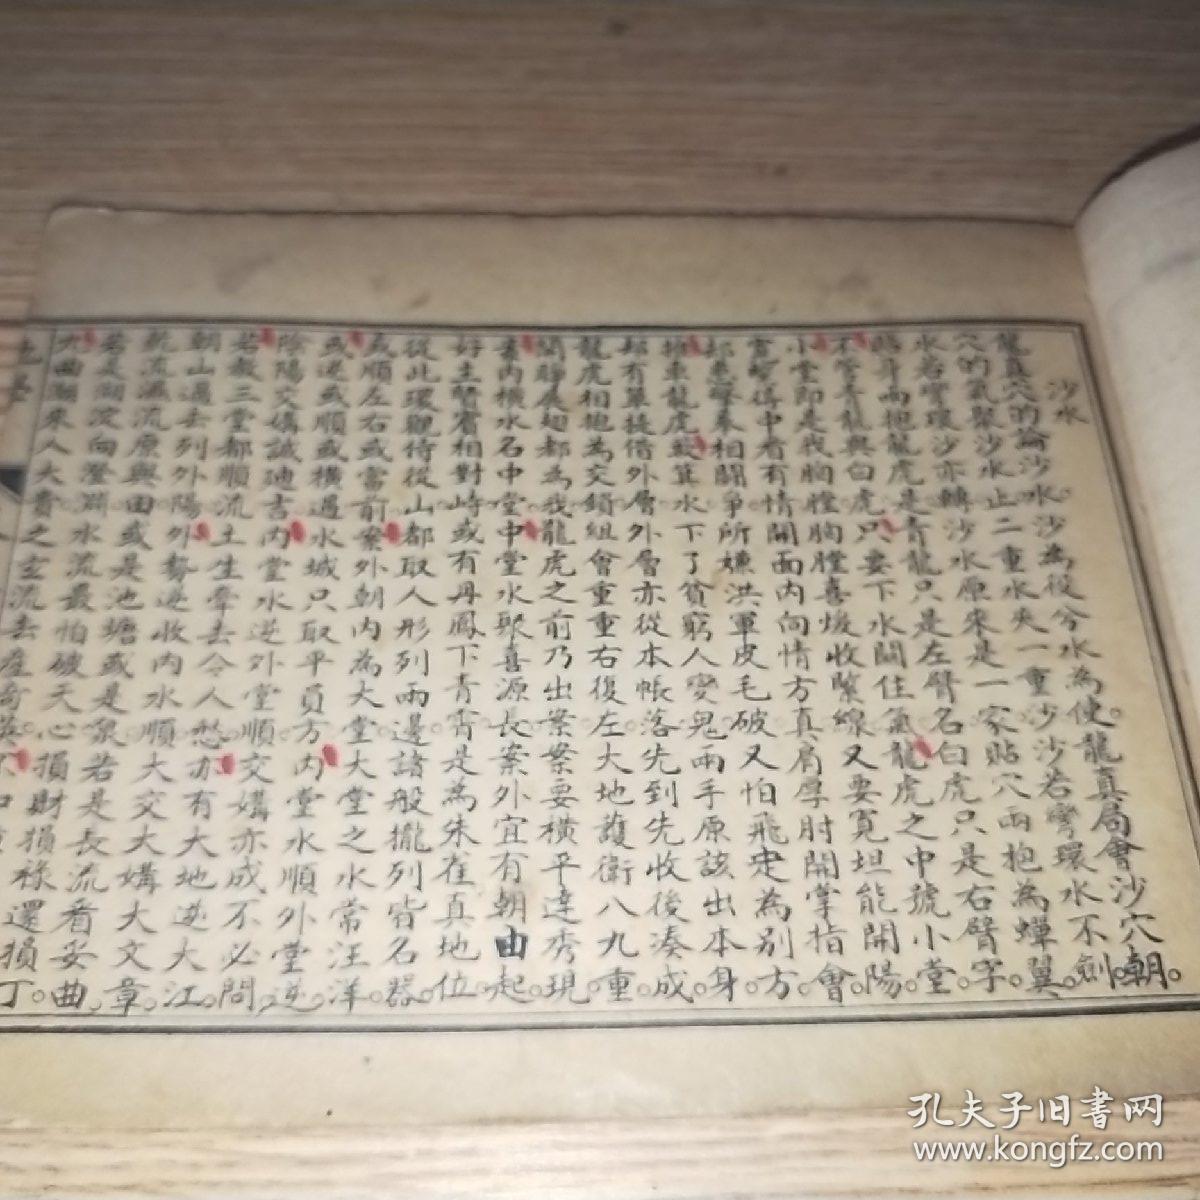 沙水
龍真穴的論沙水。沙為役兮水為使。龍真局會沙穴朝。
穴的氣聚沙水止二重水夾一重沙沙若彎環水不劍。
水若彎環沙亦轉沙水原來是一家貼穴兩抱為蟬翼。
臂并兩抱龍虎是青龍只是左臂名白虎只是右臂字。
不管青龍與白虎只要下水關住氣龍虎之中號小堂。
小堂即是我胸膛胸膛喜煖收緊線又要寬坦能開陽。
堂中看有情開面内向情方真肩厚肘開掌指會。
相鬪爭所嫌洪軍皮毛破又怕飛走為別方。
龍虎箕水下了貧窮人變鬼兩手原該出本身。
却有單提借外層外層亦從本帳落先到先收後湊成。
龍虎相抱為交鎖組會重重右復左大地護衛八九重。
開睜展翅都為我龍虎之前乃出案案要橫平逹秀現。
案内橫水名中堂中堂水聚喜源長案外宜有朝曲起。
好主賢賓相對峙或有丹鳳下青霄是為朱雀真地位。
從此環觀侍從山都取人形列兩邊諸般擺列皆名器。
或順左右或當前案外朝内為大堂大堂之水常汪洋。
或逆或順或橫過水城只取平員方内堂水順外堂逆。
陰陽交媾誠廸吉内堂水逆外堂順交媾亦成不必問。
若教三堂都順流土生牽去令人愁亦有大地逆大江。
朝山過去列外陽外勢逆收内水順大交大媾大文章。
乾流濕流原與田或是池塘或是泉若是長流看妥曲。
若是湖淀向澄淵水流最怕破天心損財損祿還損丁。
九曲朝來人大貴之玄流去產奇英